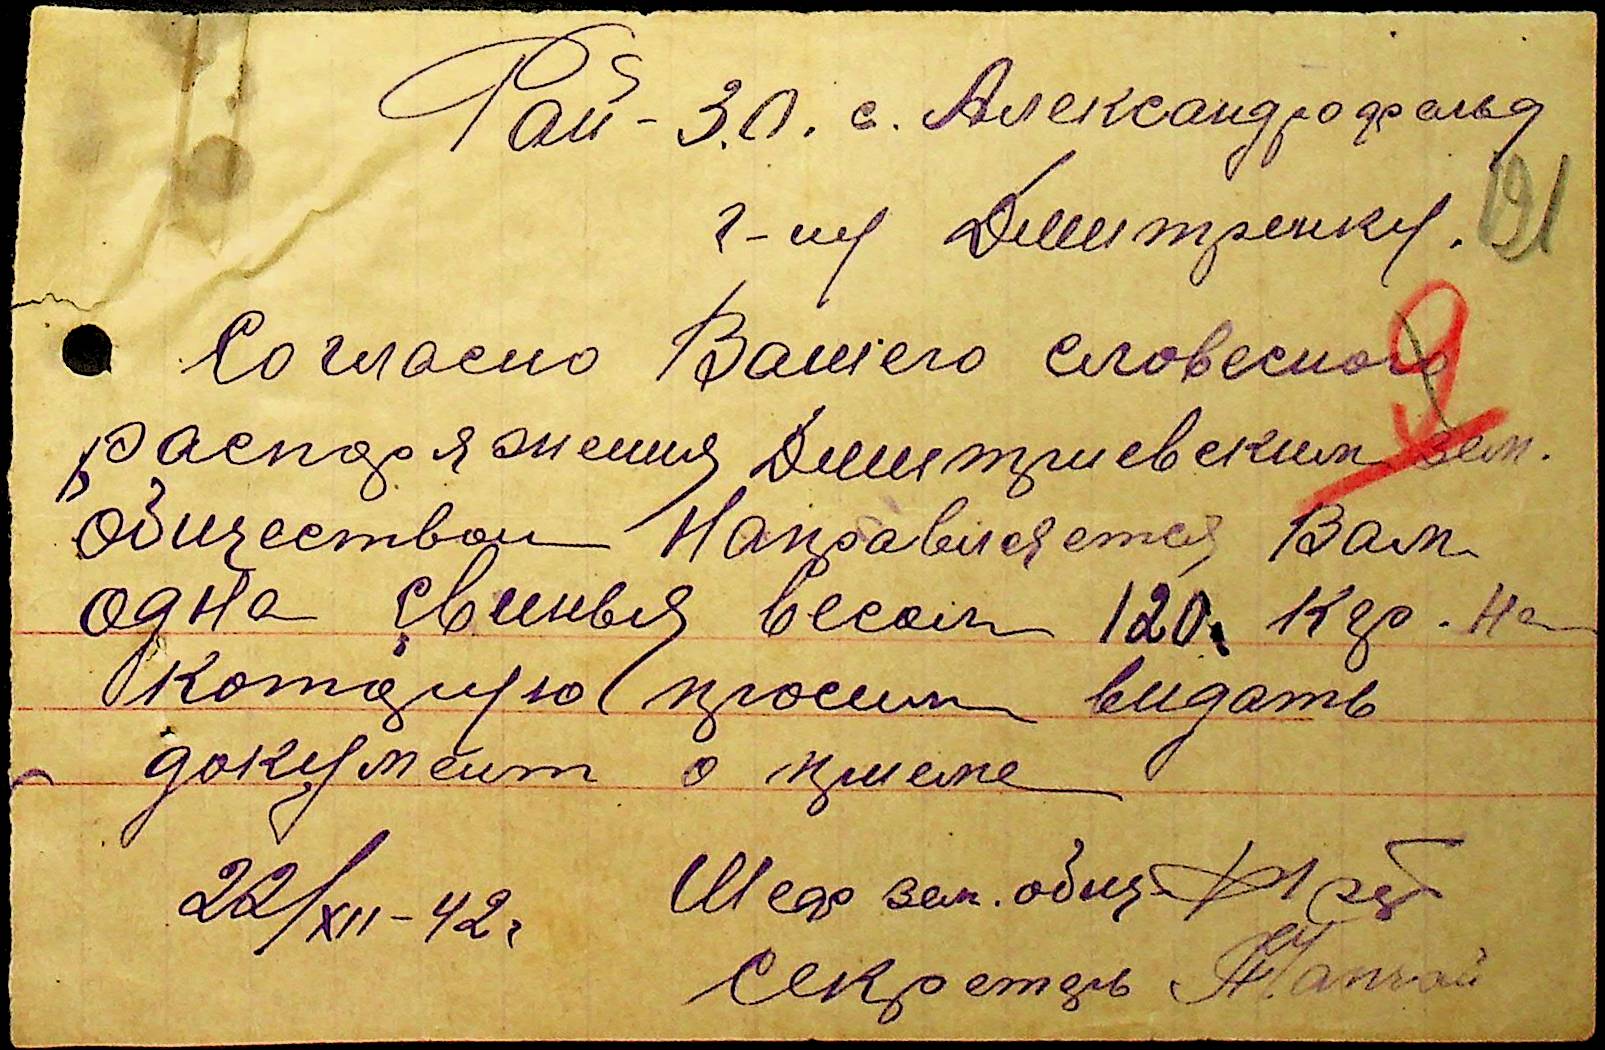 Рай-З.О. с. Александрофельд
г-ну Дмитренку.
191
9
Согласно Вашего словесного
распоряжения Дмитриевским зем.
обществом направляется Вам
одна свинья весом 120. кгр. на
которую просим видать
документ о приеме
22/XII-42г
Шеф зем. общ
Секретарь